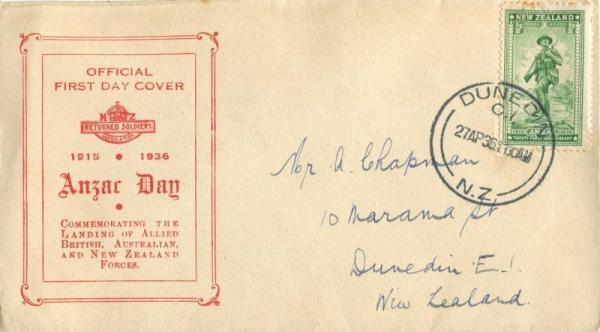 OFFICIAL
FIRST DAY COVER
N Z
RETURNED SOLDIERS
ASSOCIATION
1915 • 1936
Anzac Day
COMMEMORATING THE
LANDING OF ALLIED
BRITISH, AUSTRALIAN,
AND NEW ZEALAND
FORCES.
NEW ZEALAND
DUNEDIN
27AP36
N.Z.
1915 ANZAC 1936
TWENTY FIRST ANNIVERSARY
Mr A. Chapman
10 Marama St
Dunedin E.1.
New Zealand.